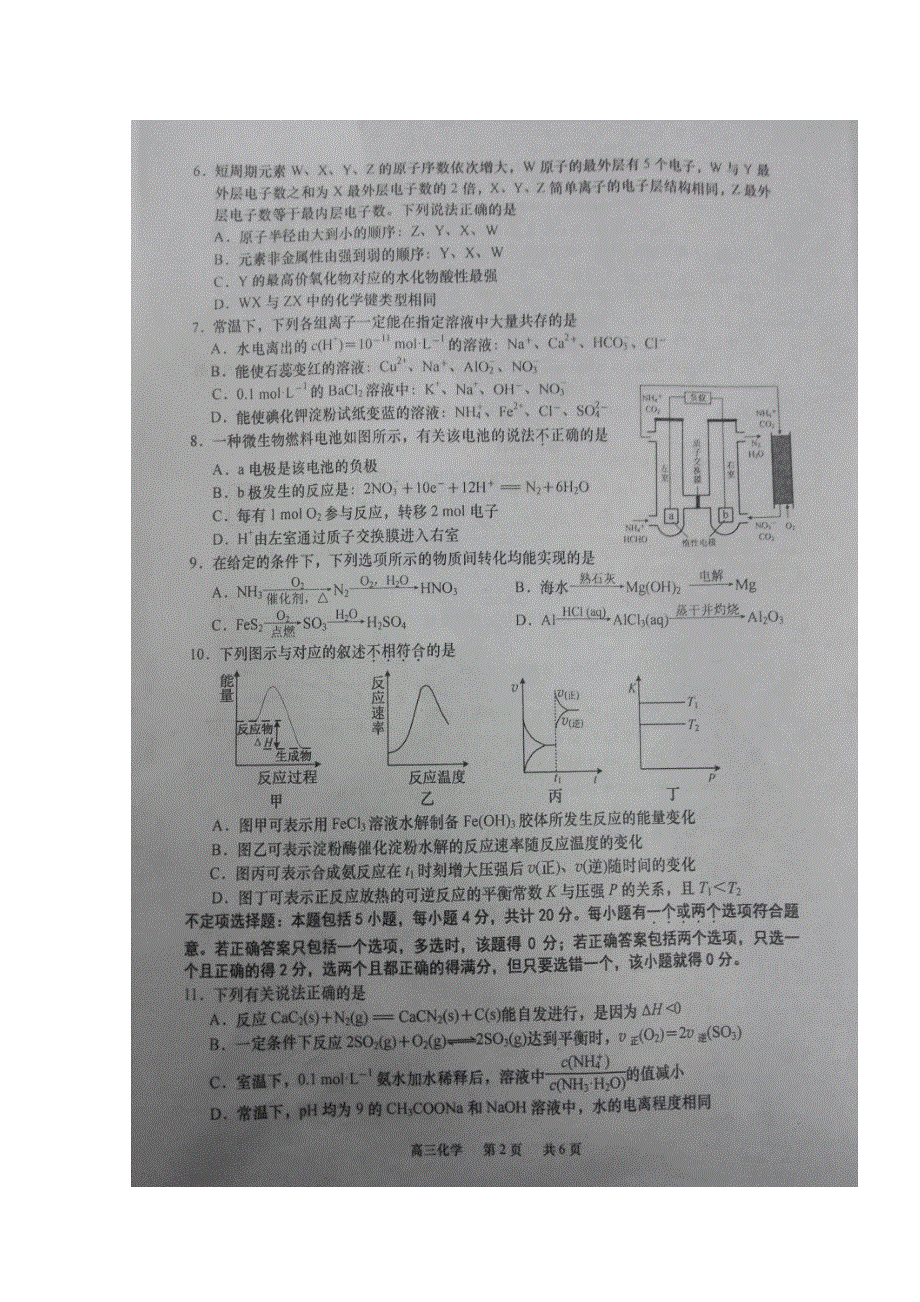 6．短周期元素 W、X、Y、Z 的原子序数依次增大，W 原子的最外层有 5 个电子，W 与 Y 最
外层电子数之和为 X 最外层电子数的 2 倍，X、Y、Z 简单离子的电子层结构相同，Z 最外
层电子数等于最内层电子数。下列说法正确的是
A．原子半径由大到小的顺序：Z、Y、X、W
B．元素非金属性由强到弱的顺序：Y、X、W
C．Y 的最高价氧化物对应的水化物酸性最强
D．WX 与 ZX 中的化学键类型相同
7．常温下，下列各组离子一定能在指定溶液中大量共存的是
A．水电离出的 c(H⁺)＝10⁻¹¹ mol·L⁻¹ 的溶液：Na⁺、Ca²⁺、HCO₃⁻、Cl⁻
B．能使石蕊变红的溶液：Cu²⁺、Na⁺、AlO₂⁻、NO₃⁻
C．0.1 mol·L⁻¹ 的 BaCl₂ 溶液中：K⁺、Na⁺、OH⁻、NO₃⁻
D．能使碘化钾淀粉试纸变蓝的溶液：NH₄⁺、Fe²⁺、Cl⁻、SO₄²⁻
8．一种微生物燃料电池如图所示，有关该电池的说法不正确的是
A．a 电极是该电池的负极
B．b 极发生的反应是：2NO₃⁻＋10e⁻＋12H⁺ ══ N₂＋6H₂O
C．每有 1 mol O₂ 参与反应，转移 2 mol 电子
D．H⁺由左室通过质子交换膜进入右室
NH₄⁺
CO₂
负载
NH₄⁺
CO₂
N₂
H₂O
左室
质子交换器
右室
a
b
NH₄⁺
HCHO
惰性电极
NO₃⁻
CO₂
O₂
9．在给定的条件下，下列选项所示的物质间转化均能实现的是
A．NH₃ —O₂ 催化剂，△→ N₂ —O₂，H₂O→ HNO₃ B．海水 —熟石灰→ Mg(OH)₂ —电解→ Mg
C．FeS₂ —O₂ 点燃→ SO₃ —H₂O→ H₂SO₄ D．Al —HCl (aq)→ AlCl₃(aq) —蒸干并灼烧→ Al₂O₃
10．下列图示与对应的叙述不相符合的是
能量
反应物
△H
生成物
反应过程
甲
反应速率
反应温度
乙
v
v(正)
v(逆)
t₁ t
丙
K
T₁
T₂
P
丁
A．图甲可表示用 FeCl₃ 溶液水解制备 Fe(OH)₃ 胶体所发生反应的能量变化
B．图乙可表示淀粉酶催化淀粉水解的反应速率随反应温度的变化
C．图丙可表示合成氨反应在 t₁ 时刻增大压强后 v(正)、v(逆)随时间的变化
D．图丁可表示正反应放热的可逆反应的平衡常数 K 与压强 P 的关系，且 T₁＜T₂
不定项选择题：本题包括 5 小题，每小题 4 分，共计 20 分。每小题有一个或两个选项符合题
意。若正确答案只包括一个选项，多选时，该题得 0 分；若正确答案包括两个选项，只选一
个且正确的得 2 分，选两个且都正确的得满分，但只要选错一个，该小题就得 0 分。
11．下列有关说法正确的是
A．反应 CaC₂(s)＋N₂(g) ══ CaCN₂(s)＋C(s)能自发进行，是因为 ΔH <0
B．一定条件下反应 2SO₂(g)＋O₂(g)⇌2SO₃(g)达到平衡时，v正(O₂)＝2v逆(SO₃)
C．室温下，0.1 mol·L⁻¹ 氨水加水稀释后，溶液中 c(NH₄⁺)/c(NH₃·H₂O) 的值减小
D．常温下，pH 均为 9 的 CH₃COONa 和 NaOH 溶液中，水的电离程度相同
高三化学 第 2 页 共 6 页